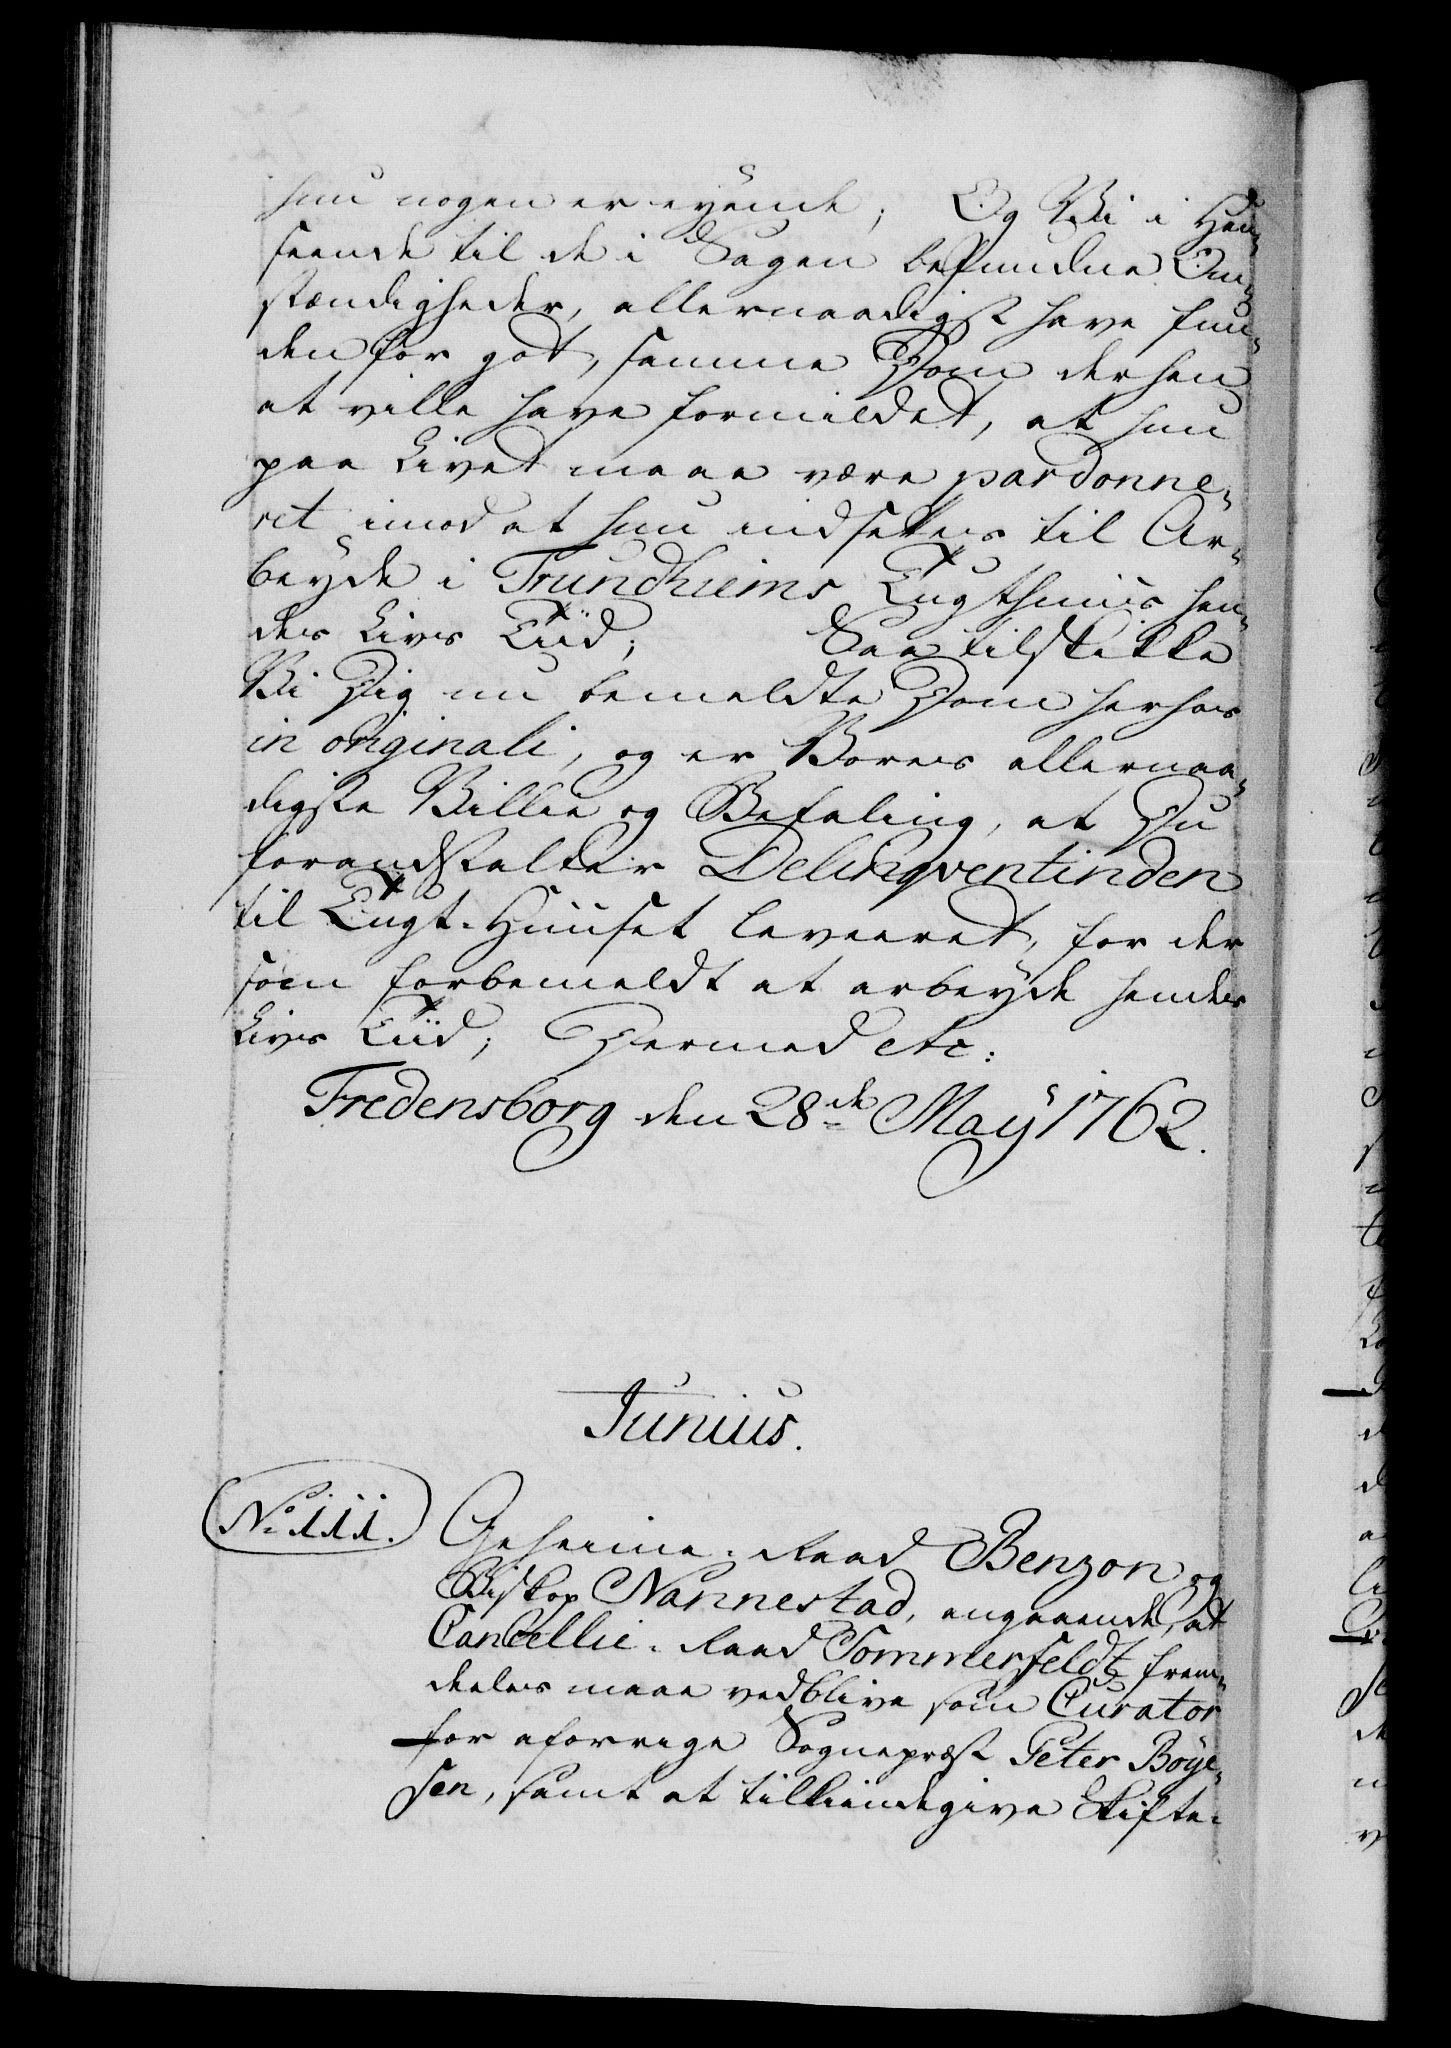 hun nogen er eyende; Og Vi i Hen-
seende til de i Sagen befundne Om-
stændigheder, allernaadigst have fun-
den for got, samme Dom derhen
at ville have formildet, at hun
paa Livet maae være pardonne-
ret imod at hun indsettes til Ar-
beyde i Trundhiems Tugthuus hen-
des Lives Tiid; Saa tilskikke
Vi Dig nu bemeldte Dom herhos
in originali, og er Vores allernaa-
digste Villie og Befaling, at Du
foranstalter Delinqventinden
til Tugt-Huuset leveeret, for der
som forbemeldt at arbeyde hendes
Lives Tiid; Dermed etc:
Fredensborg den 28de Maÿ 1762.
Junius.
No 111. Geheime-Raad Benzon og
Biskop Nannestad, angaaende, at
Cancellie-Raad Sommerfeldt frem-
deeles maae vedblive som Curator
for aforrige Sognepræst Peter Böye-
sen, samt at tilkiendegive Stifts-